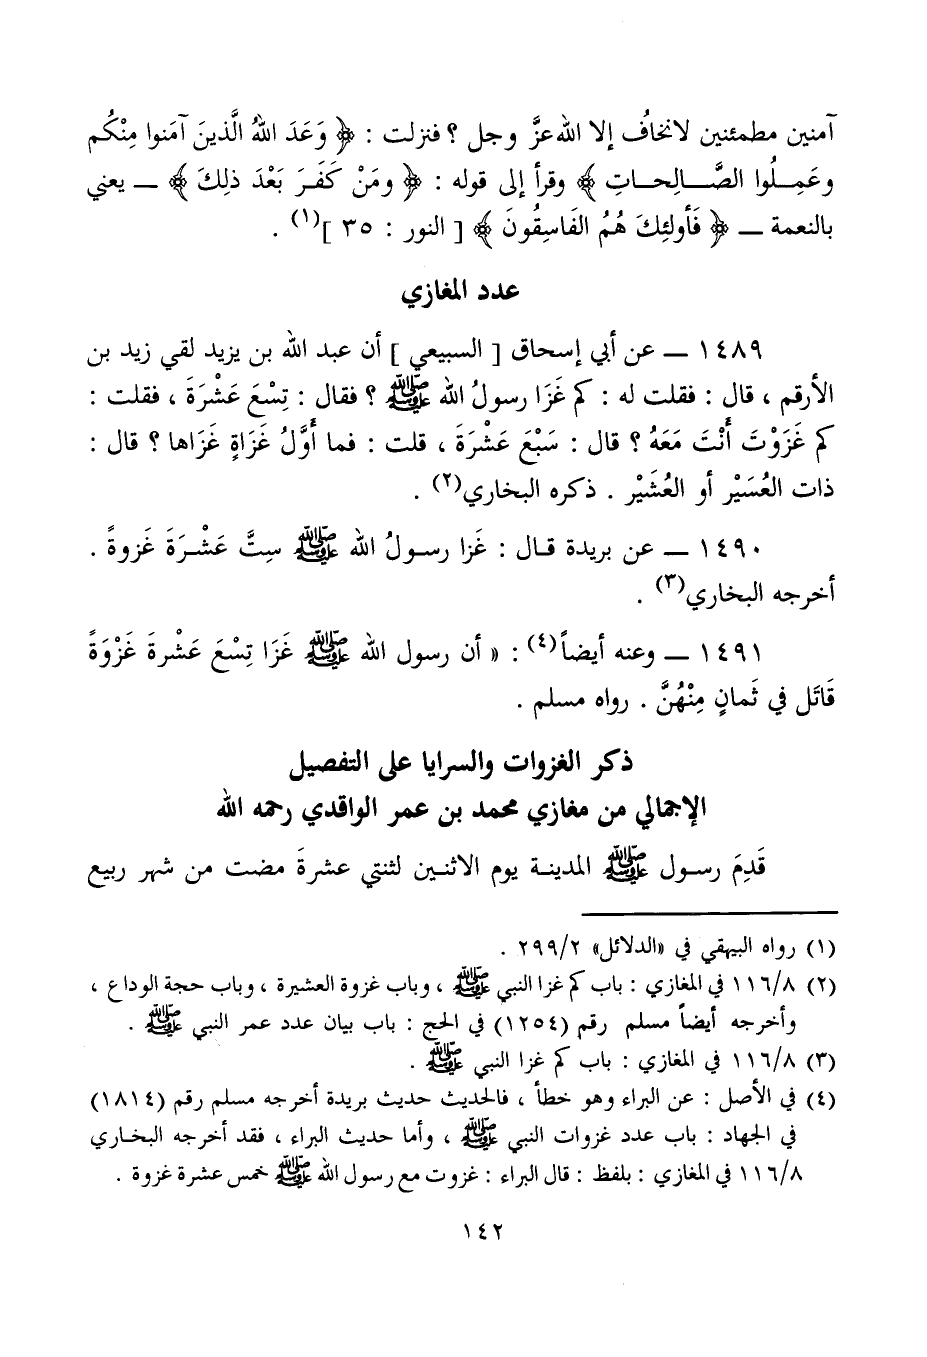 آمنين مطمئنين لا نخافُ إلا الله عزَّ وجل ؟ فنزلت : ﴿ وَعَدَ اللهُ الَّذينَ آمَنوا مِنْكُم
وعَمِـلُوا الصَّـــالِحـاتِ ﴾ وقرأ إلى قوله : ﴿ ومَنْ كَفَرَ بَعْدَ ذلِكَ ﴾ ــ يعني
بالنعمة ــ ﴿ فَأولئِكَ هُمُ الفَاسِقُونَ ﴾ [ النور : ٣٥ ](١) .
عدد المغازي
١٤٨٩ ــ عن أبي إسحاق [ السبيعي ] أن عبد الله بن يزيد لقي زيد بن
الأرقم ، قال : فقلت له : كم غَزَا رسولُ الله ﷺ ؟ فقال : تِسْعَ عَشْرَةَ ، فقلت :
كم غَزَوْتَ أَنْتَ مَعَهُ ؟ قال : سَبْعَ عَشْرَةَ ، قلت : فما أَوَّلُ غَزَاةٍ غَزَاها ؟ قال :
ذات العُسَيْر أو العُشَيْر . ذكره البخاري(٢) .
١٤٩٠ ــ عن بريدة قـال : غَزا رسـولُ الله ﷺ سِتَّ عَشْـرَةَ غَزوةً .
أخرجه البخاري(٣) .
١٤٩١ ــ وعنه أيضاً(٤) : « أن رسول الله ﷺ غَزَا تِسْعَ عَشْرةَ غَزْوَةً
قَاتَل في ثَمانٍ مِنْهُنَّ . رواه مسلم .
ذكر الغزوات والسرايا على التفصيل
الإجمالي من مغازي محمد بن عمر الواقدي رحمه الله
قَدِمَ رسـول ﷺ المدينـة يوم الاثنـين لثنتي عشـرةَ مضت من شهر ربيع
(١) رواه البيهقي في «الدلائل» ٢٩٩/٢ .
(٢) ١١٦/٨ في المغازي : باب كم غزا النبي ﷺ ، وباب غزوة العشيرة ، وباب حجة الوداع ،
وأخرجه أيضاً مسلم رقم (١٢٥٤) في الحج : باب بيان عدد عمر النبي ﷺ .
(٣) ١١٦/٨ في المغازي : باب كم غزا النبي ﷺ .
(٤) في الأصل : عن البراء وهو خطأ ، فالحديث حديث بريدة أخرجه مسلم رقم (١٨١٤)
في الجهاد : باب عدد غزوات النبي ﷺ ، وأما حديث البراء ، فقد أخرجه البخـاري
١١٦/٨ في المغازي : بلفظ : قال البراء : غزوت مع رسول الله ﷺ خمس عشرة غزوة .
١٤٢